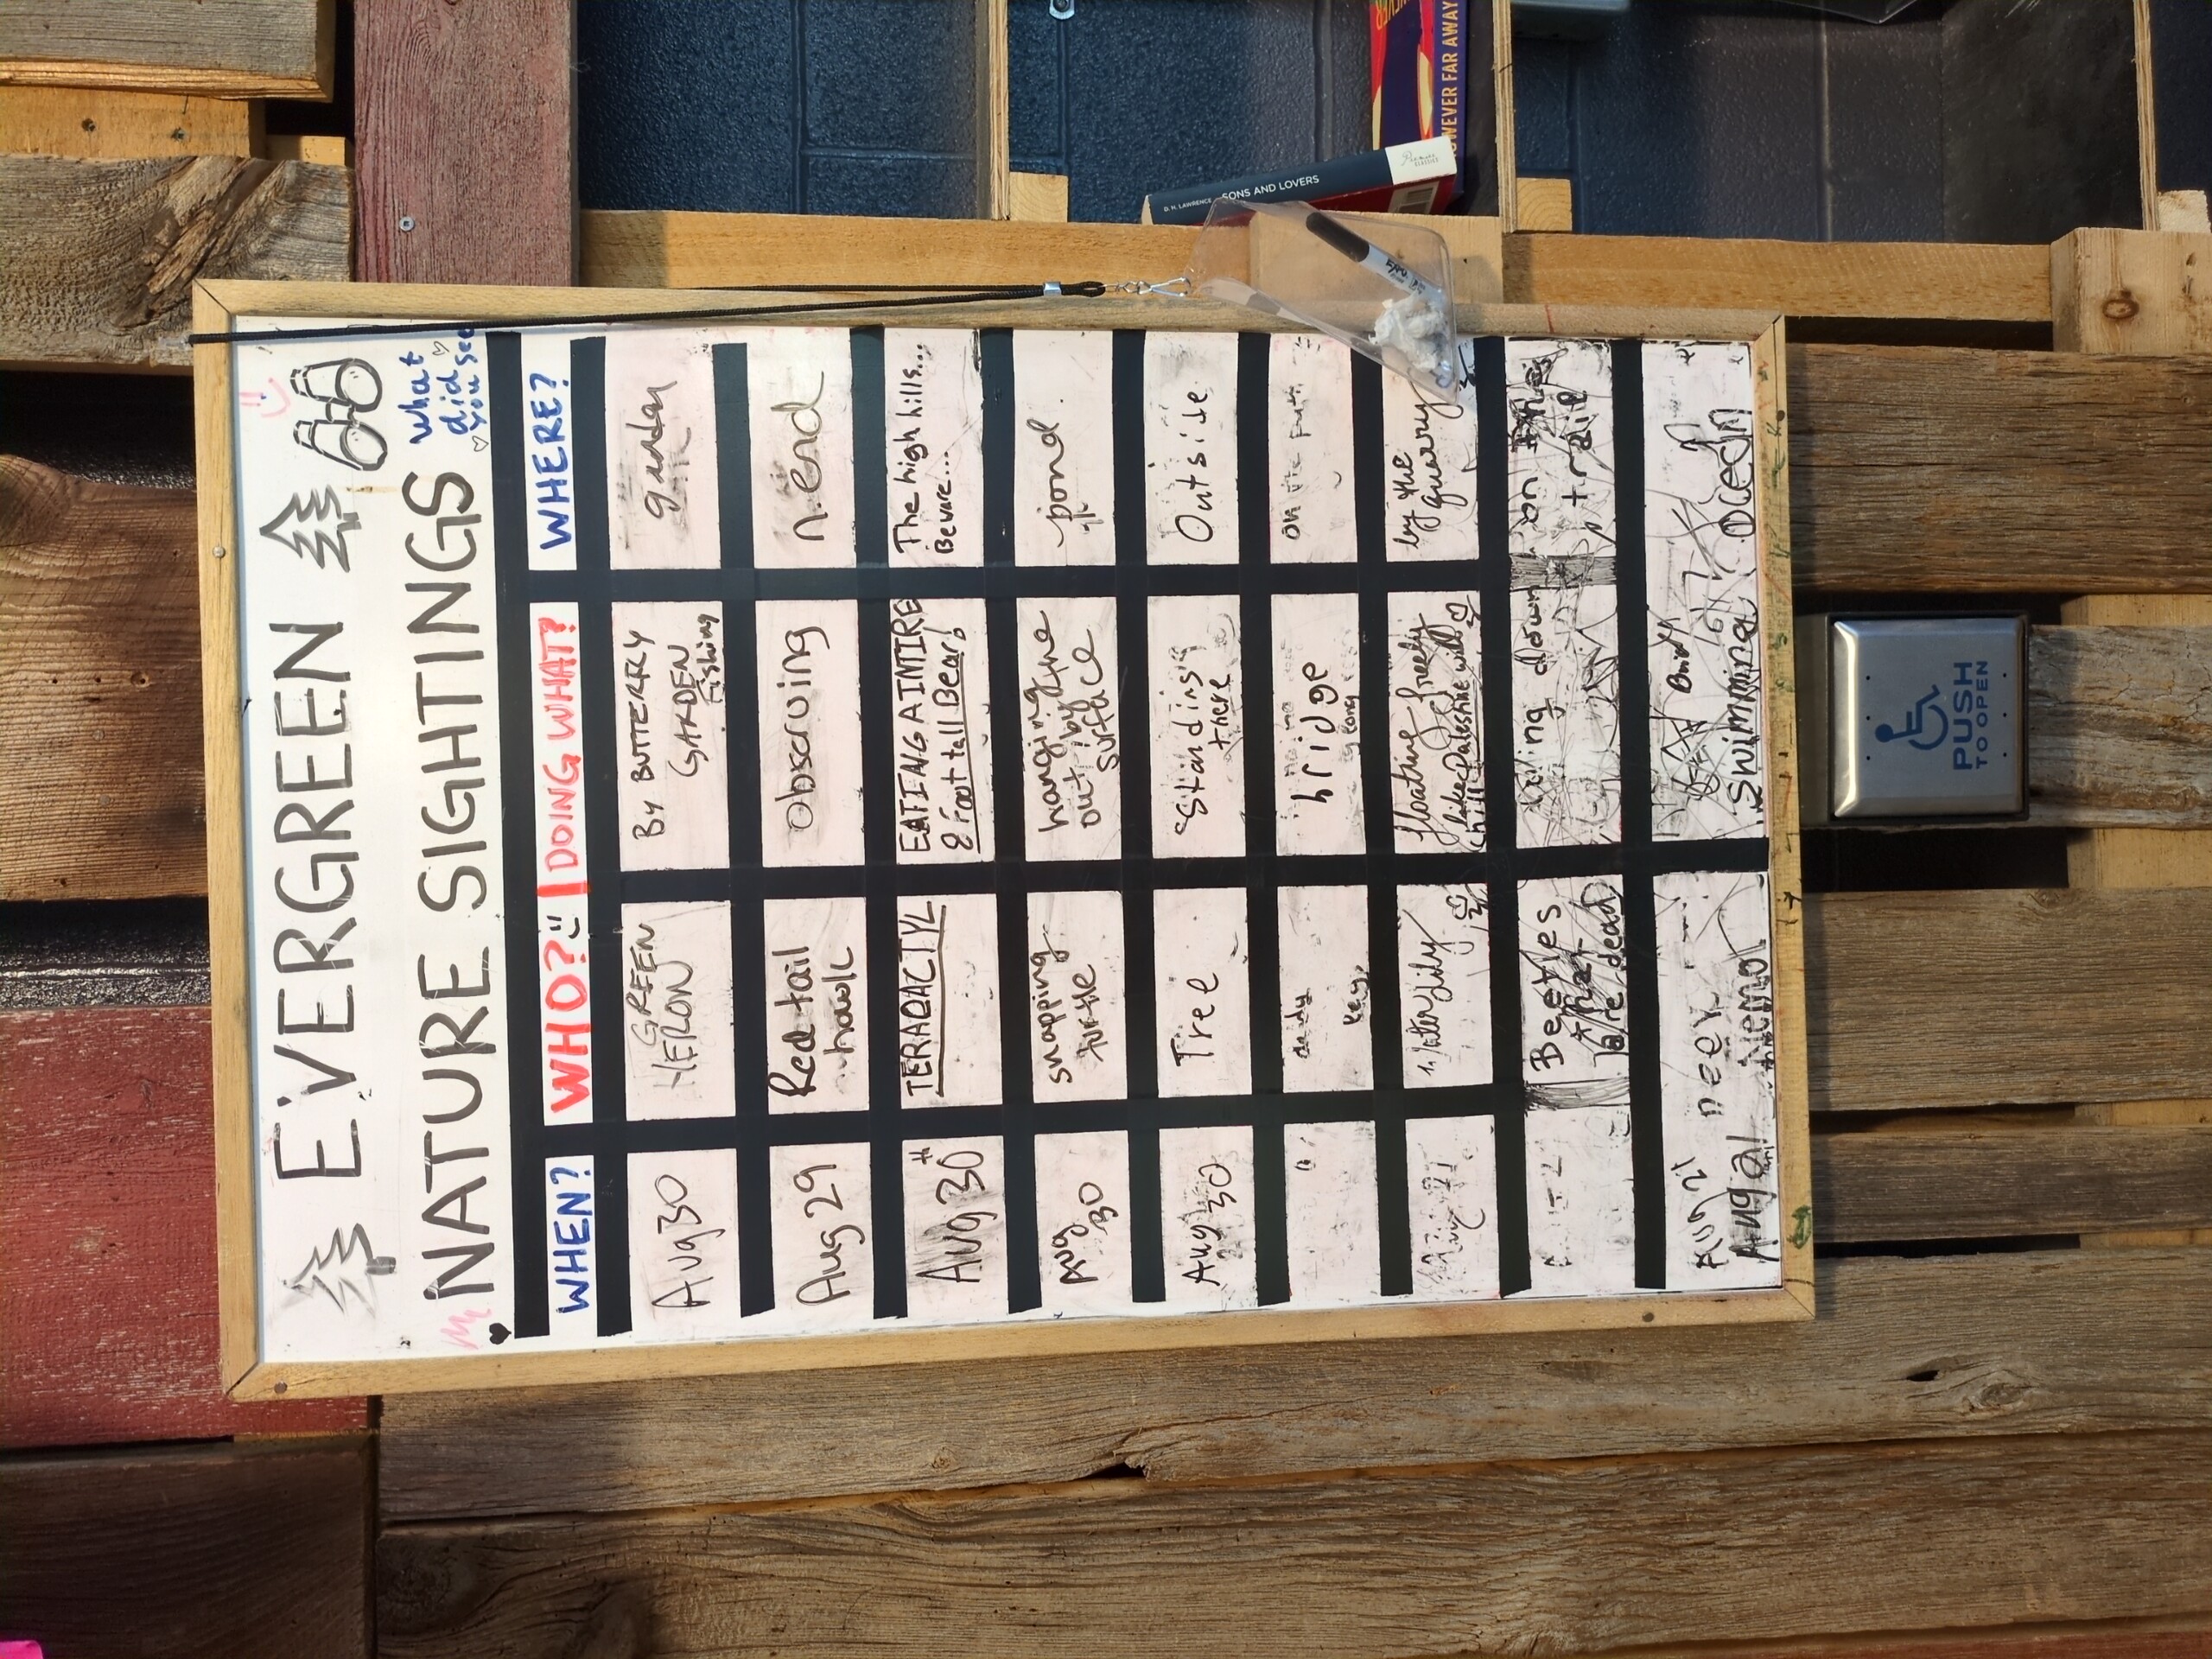 EVERGREEN
NATURE SIGHTINGS
What
did
you see
WHEN? WHO? DOING WHAT? WHERE?
Aug 30
GREEN
HERON
By BUTTERFLY
GARDEN
Fishing
garden
Aug 29
Red tail
hawk
observing
n. end
Aug 30th
TERADACTYL
EATING A INTIRE
8 Foot tall Bear!
The high hills...
Beware...
Aug
30
snapping
turtle
hanging
out by the
surface
pond
Aug
30
Tree
Standing
there
Outside
bridge
on the path
Lily
floating freely
like Palestine will
by the
quarry
Beetles
that
are dead
down
on the
trail
Aug 21
Aug 21
Nemo
Swimming
Ocean
D. H. LAWRENCE SONS AND LOVERS
CLASSICS
HOWEVER FAR AWAY
EXPO
PUSH
TO OPEN